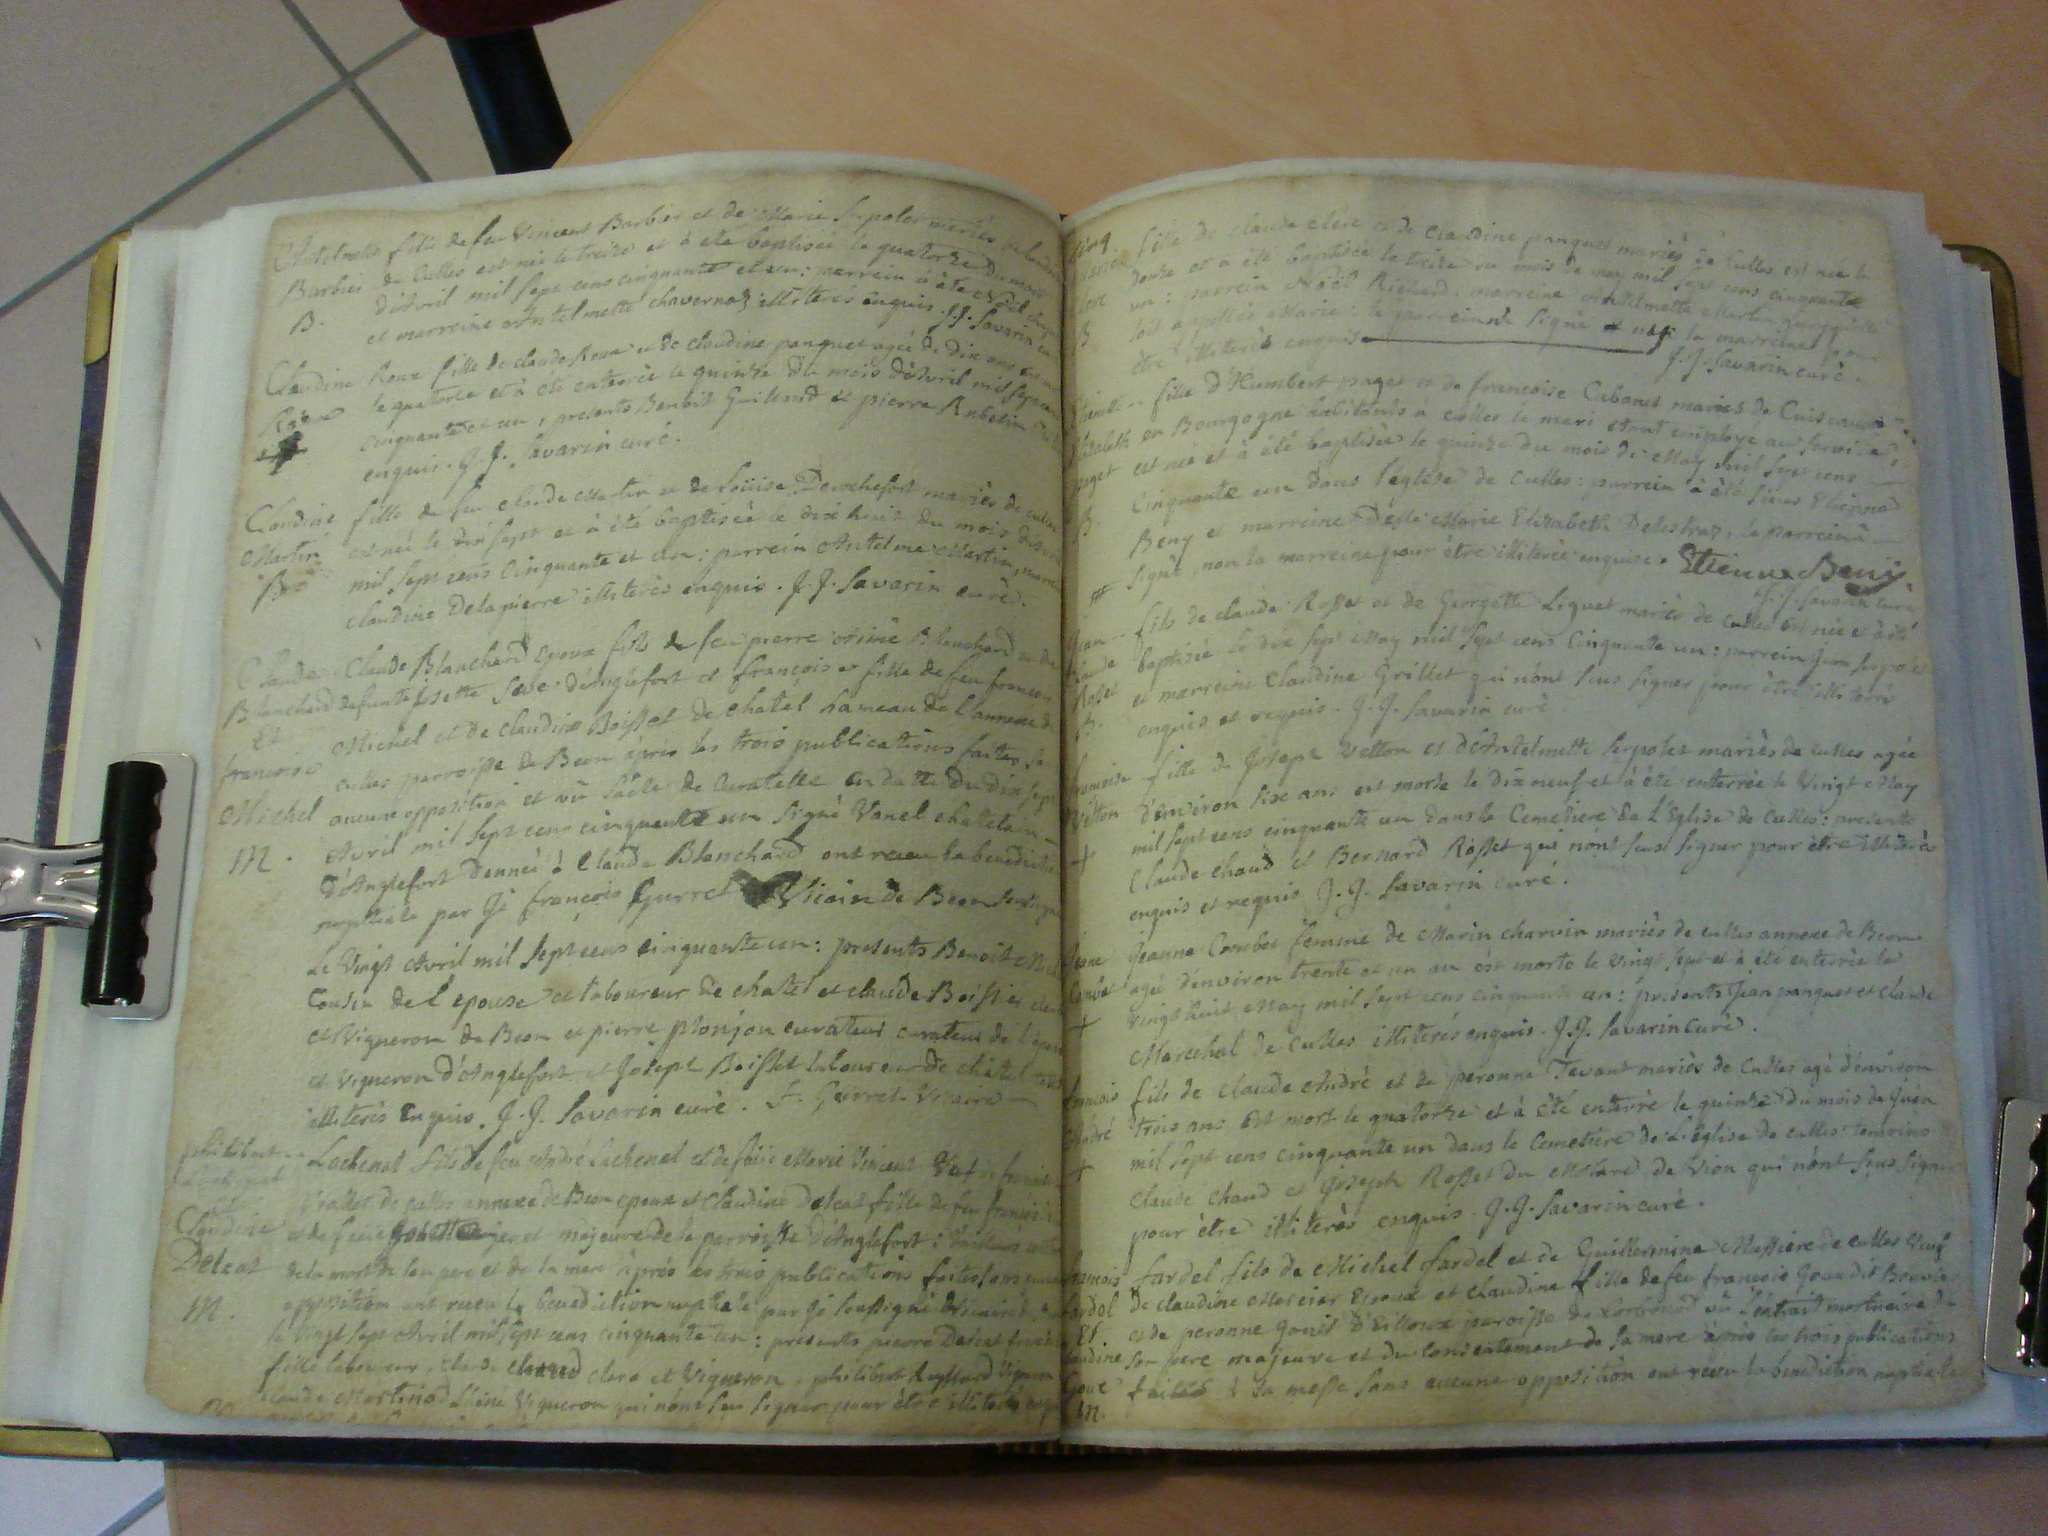 fille de feu Vincent Barbier et de Marie Serpolet mariés
Barbier de Culles est née le treize et à été baptisée le quatorze du mois
B. d'Avril mil sept cens cinquante et un : parrein à été
et marreine Antelmette chavernoz illiterés enquis. J.J. Savarin
Claudine Roux fille de claude Roux et de claudine panquet agée de dix ans
Roux le quatorze et à été enterrée le quinze du mois d'Avril mil sept cens
cinquante et un, presents Benoit Guilland et pierre Rubelin
enquis. J.J. Savarin curé.
Claudine fille de feu claude Martin et de Loüise Derochefort mariés de culles
Martin est née le dix sept et à été baptisée le dix huit du mois d'Avril
B mil sept cens Cinquante et un : parrein Antelme Martin, marreine
claudine Delapierre illiterés enquis. J.J. Savarin curé.
Claude Claude Blanchard Epoux fils de feu pierre Aimé Blanchard et de
Blanchard defunte Josette d'Anglefort et françoise fille de feu francois
Et Michel et de claudine Boisset de chatel hameau de l'annexe de
francoise culles parroisse de Beon après les trois publications faites sans
Michel aucune opposition et vû l'acte de Curatelle en datte du dix sept
M. Avril mil sept cens cinquante un signé Vanel chatelain
d'Anglefort donneé à Claude Blanchard ont receu la benediction
nuptiale par Je françois Gurret Vicaire de Beon soussigné
Le Vingt Avril mil sept cens cinquante un : presents Benoit Michel
Cousin de l'epouse et laboureur de chatel et claude Boisset
et Vigneron de Beon et pierre plonjon curateur curateur de l'epoux
et vigneron d'Anglefort et Joseph Boisset laboureur de chatel tous
illiterés enquis. J.J. Savarin curé. F. Gurret Vicaire
philibert Lachenal fils de feu André Lachenal et de feüe Marie Vincent Veuf de
de culles annexe de Beon epoux et Claudine Delcat fille de feu francois
Claudine et de feüe et majeure de la parroisse d'Anglefort :
Delcat de la mort de son pere et de la mere après les trois publications faites sans aucune
M. opposition ont receu la benediction nuptiale par Je soussigné Vicaire
le vingt sept Avril mil sept cens cinquante un : presents pierre Delcat
laboureur, claude chaud clerc et Vigneron, philibert Vigneron
claude Martinod l'ainé Vigneron qui n'ont seu signer pour être illiterés enquis
fille de claude clerc et de claudine panquet mariés de culles est née le
douze et à été baptisée le treize du mois de may mil sept cens cinquante
un : parrein Noël Richard. marreine Antelmette Martin
soit appellée Marie : le parrein a signé et non la marreine pour
B être illiterée enquise J.J. Savarin curé.
fille d'Humbert paget et de francoise Cabanet mariés de Cuiseaux
Elizabeth en Bourgogne habitants à culles le mari etant employé au service
paget est née et à été baptisée le quinze du mois de May mil sept cens
B. Cinquante un dans l'eglise de Culles : parrein à été sieur Etienne
Beny et marreine Delle Marie Elizabeth Delestraz, le parrein a
signé, non la marreine pour être illiterée enquise. Etienne Beny.
J.J. Savarin curé
Jean fils de claude Rosset et de Georgette Liquet mariés de culles est née et à été
Claude baptisée le dix sept May mil sept cens Cinquante un : parrein Jean
Rosset et marreine Claudine Grillet qui n'ont seus signer pour être illiterés
B. enquis et requis. J.J. Savarin curé.
francoise fille de Joseph Vetton et d'Antelmette Serpolet mariés de culles agée
Vetton d'environ sixe ans est morte le dix neuf et à été enterrée le Vingt May
+ mil sept cens cinquante un dans le Cemetiere de L'Eglise de Culles : presents
Claude chaud et Bernard Rosset qui n'ont seus signer pour être illiterés
enquis et requis J.J. Savarin curé.
Jeanne Jeanne Combet femme de Marin charvin mariés de culles annexe de Beon
Combet agée d'environ trente et un an est morte le vingt sept et à été enterrée le
+ vingt huit May mil sept cens cinquante un : presents Jean panquet et claude
Marechal de Culles illiterés enquis. J.J. Savarin Curé.
francois fils de Claude André et de peronne Tavant mariés de Culles agé d'environ
André trois ans est mort le quatorze et à été enterré le quinze du mois de Juin
+ mil sept cens cinquante un dans le Cemetiere de L'Eglise de culles temoins
Claude Chaud et Joseph Rosset du Molard de Vion qui n'ont seus signer
pour être illiterés enquis. J.J. Savarin curé.
francois fardel fils de Michel fardel et de Guillermine Massiere de culles Veuf
fardel de claudine Mercier Epoux et claudine fille de feu francois
Et. et de peronne d'Eilloux paroisse de vû l'extrait mortuaire de
Claudine son pere majeure et du consentement de sa mere après les trois publications
faites à la messe sans aucune opposition ont receu la benediction nuptiale
M.